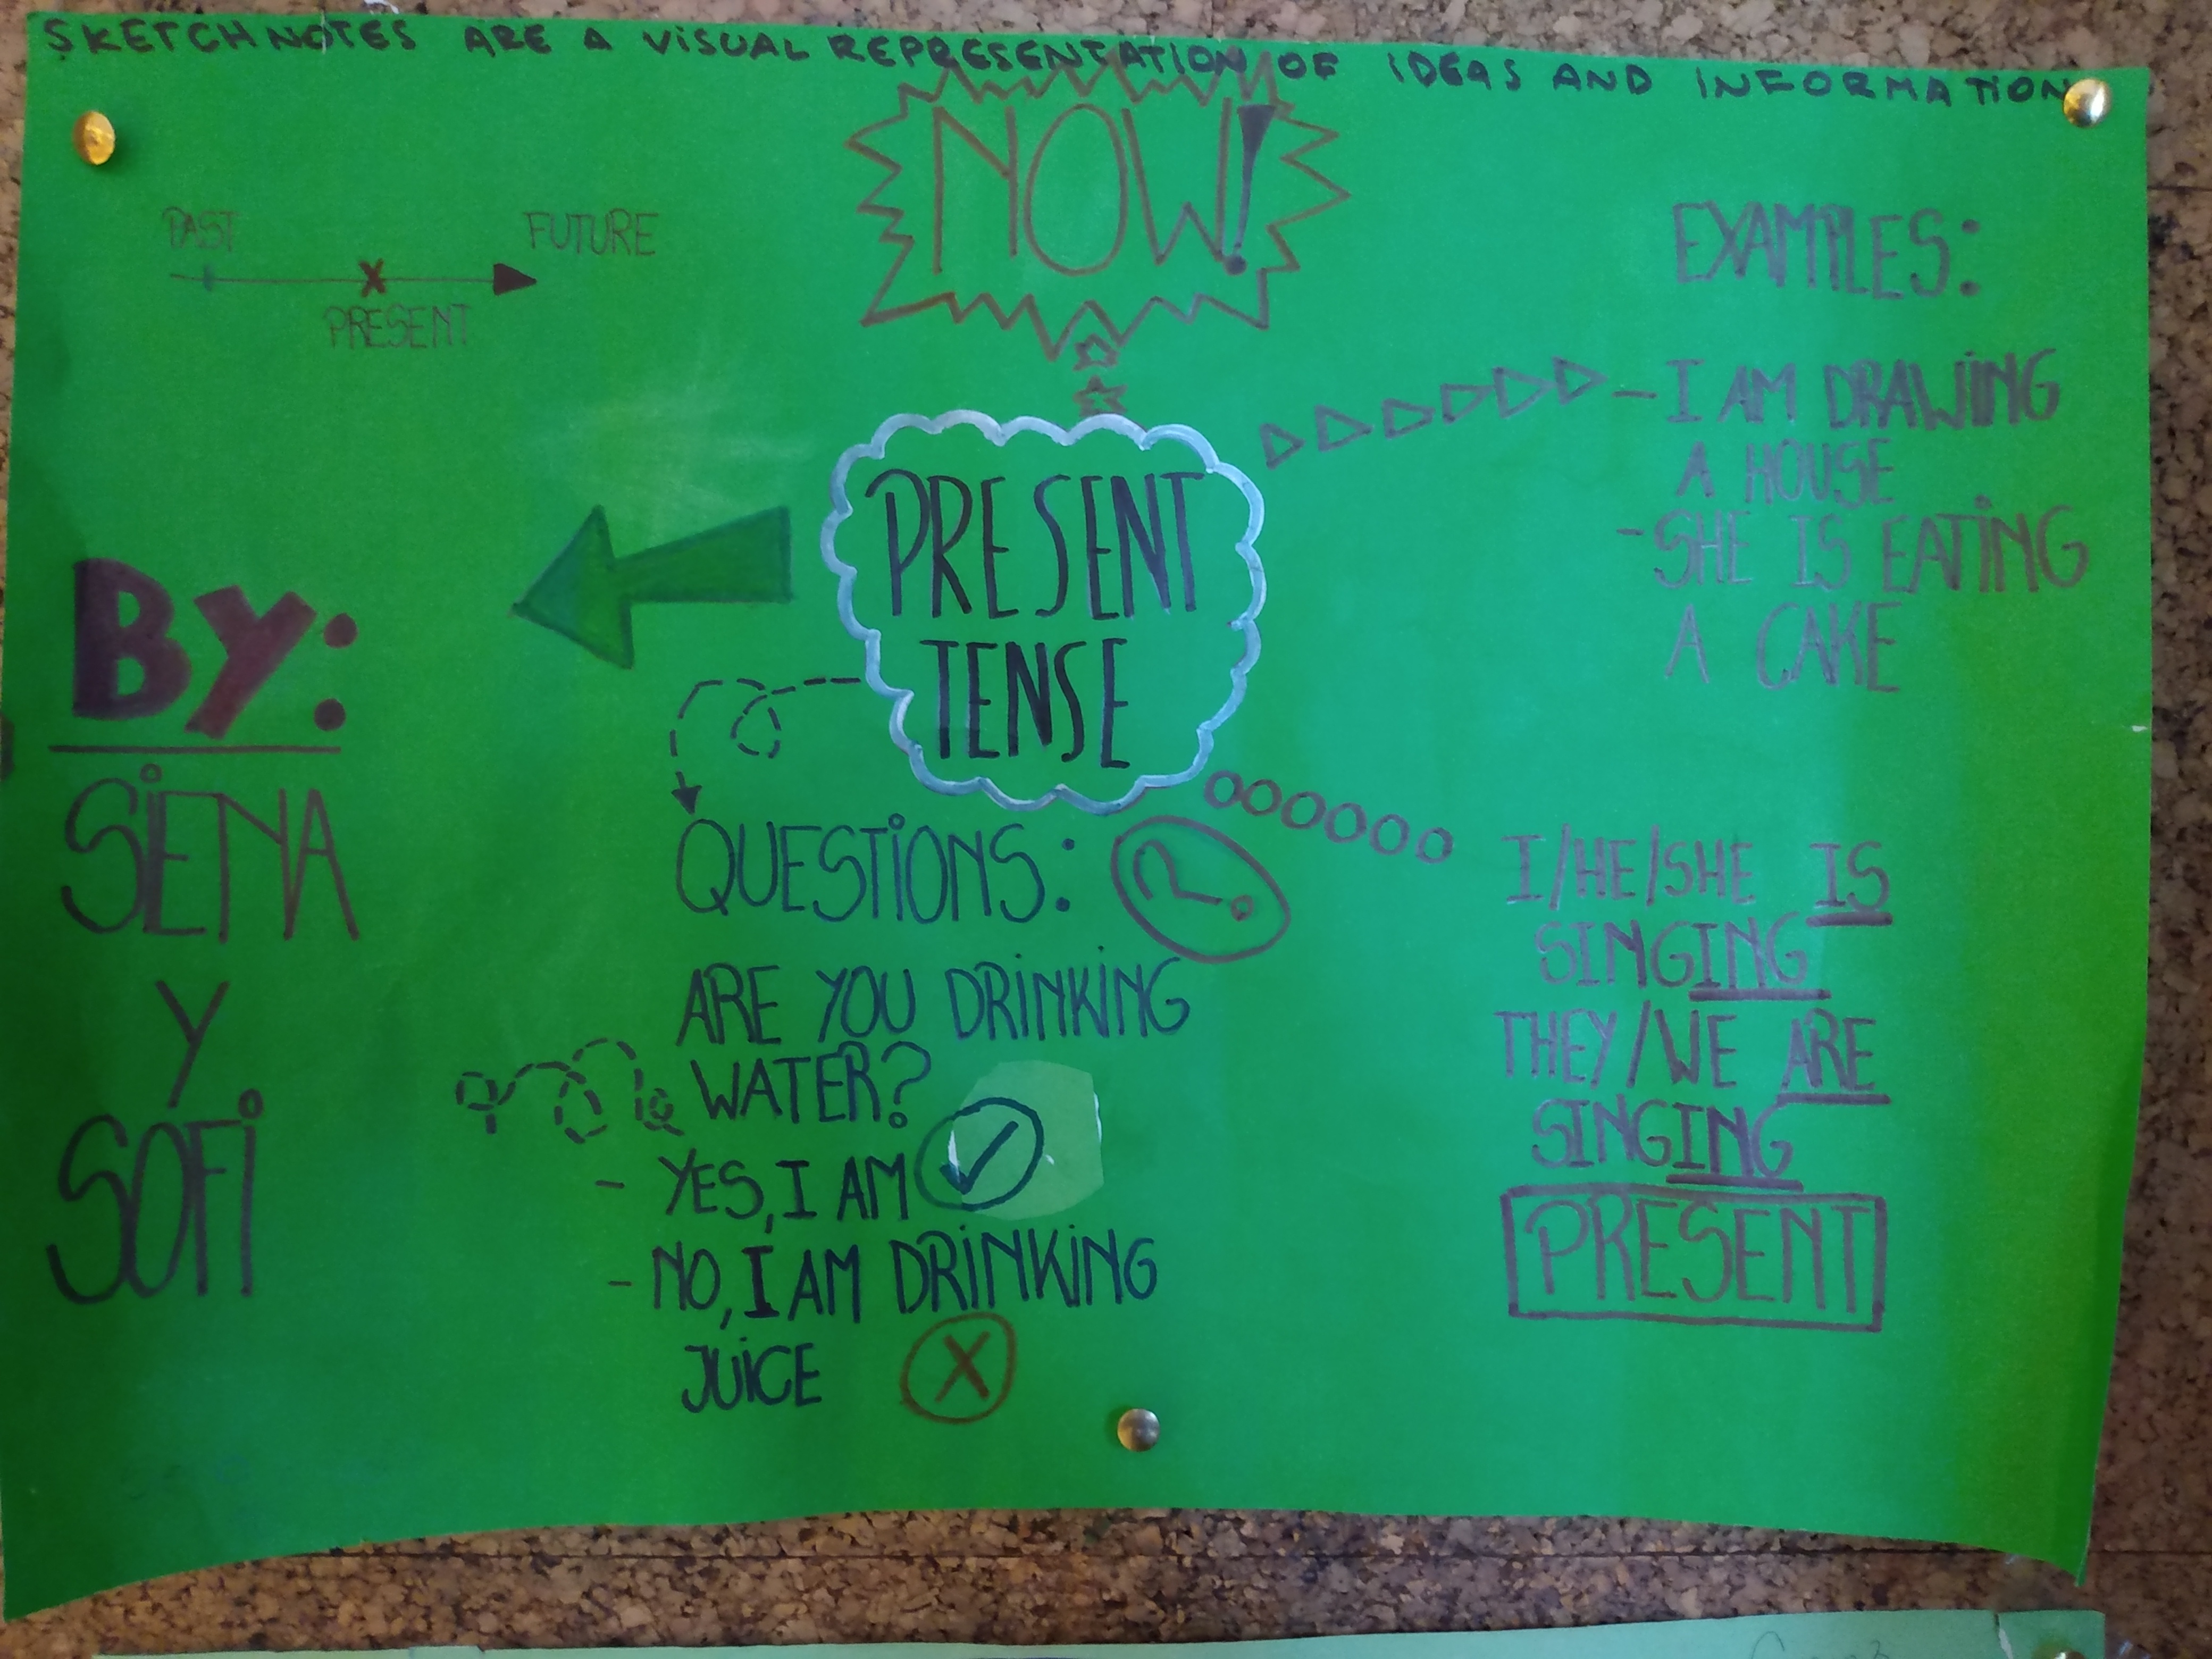 SKETCHNOTES ARE A VISUAL REPRESENTATION OF IDEAS AND INFORMATION
NOW!
PAST
FUTURE
PRESENT
PRESENT
TENSE
EXAMPLES:
- I AM DRAWING
A HOUSE
- SHE IS EATING
A CAKE
BY:
SIENA
Y
SOFI
QUESTIONS: ?
ARE YOU DRINKING
WATER?
- YES, I AM
- NO, I AM DRINKING
JUICE X
I/HE/SHE IS
SINGING
THEY/WE ARE
SINGING
PRESENT